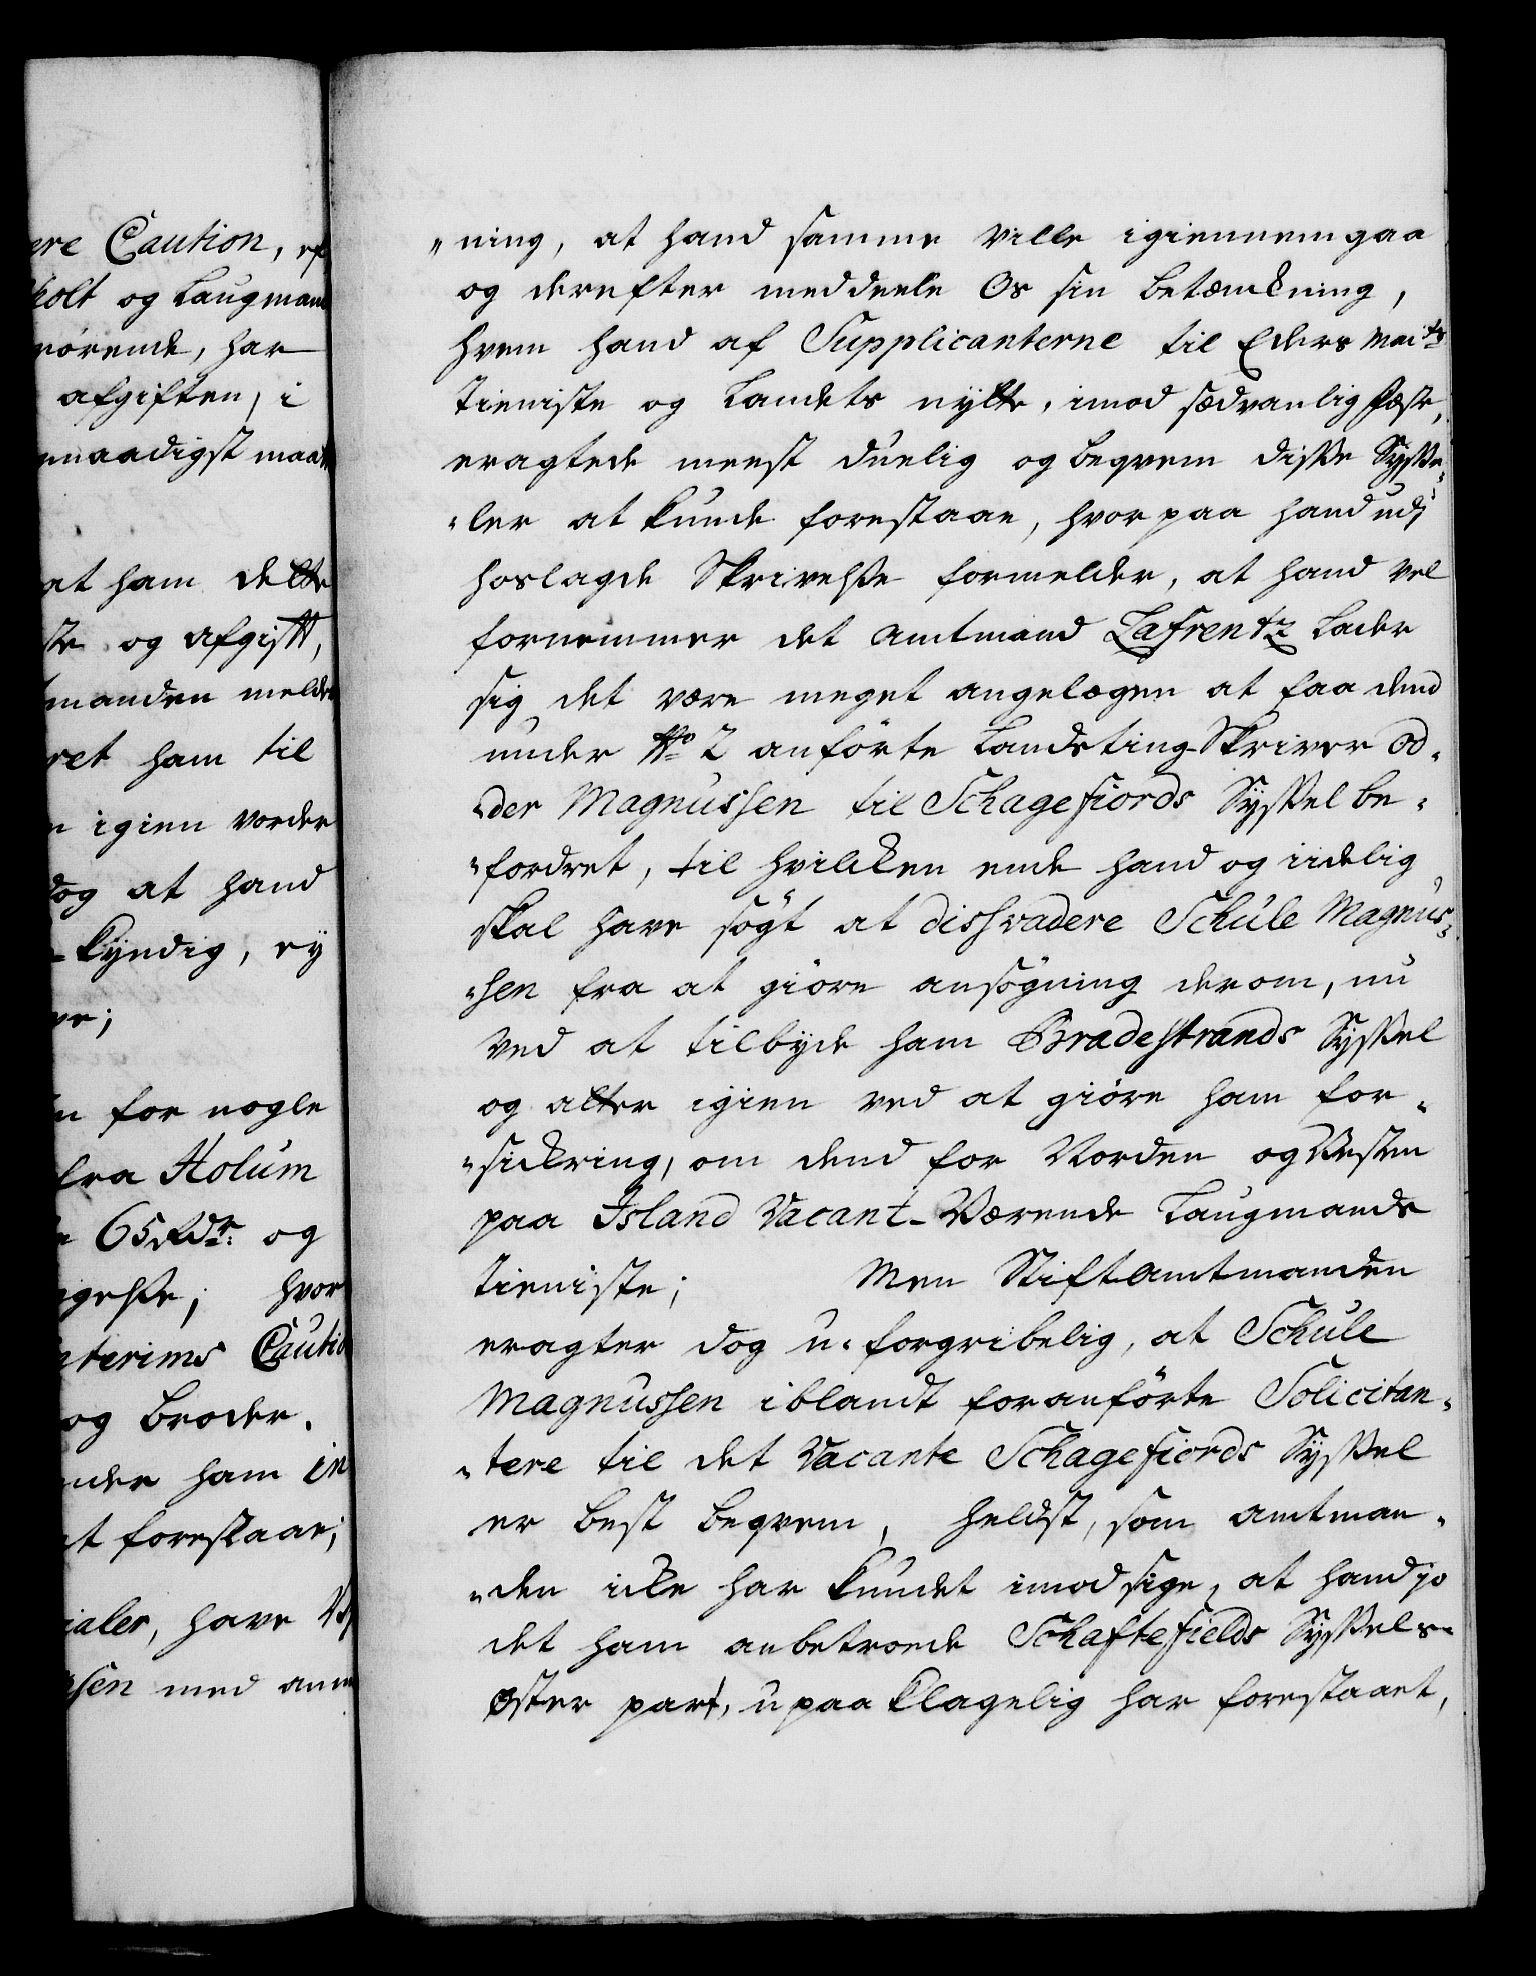 ere Caution, ef
holt og Laugmand
rörende, har
afgiften, i
naadigst maatte
at ham dette
ste og afgift,
manden melder
ret ham til
n igien vorder
dog at hand
kyndig, ey
ve;
n for nogle
fra Holum
65 Rdr. og
gelse, hvor
nterims Cautio
og broder.
nder ham in
at forestaae;
ialer, have
sen med ann
"ning, at hand samme ville igiennemgaa
og derefter meddeele Os sin betænckning,
hvem hand af Supplicanterne til Eders Maits
tieniste og Landets nytte, imod sædvanlig fæste,
eragtede meest duelig og beqvem disse Sysse-
"ler at kunde forestaae, hvorpaa hand udi
hoslagde Skrivelse formelder, at hand vel
fornemmer det Amtmand Lafrentz lader
sig det være meget angelægen at faa dend
under No 2 anförte Landsting Skriver Od-
"der Magnussen til Schagefiords Syssel be-
"fordret, til hvilcken ende hand og iidelig
skal have sögt at dissvadere Schule Magnus-
"sen fra at giöre ansögning derom, nu
ved at tilbyde ham Bradestrands Syssel
og atter igien ved at giöre ham for-
"sickring, om dend for Norden og Vesten
paa Island Vacant-Værende Laugmands
tieniste; Men Stiftamtmanden
eragter dog u-forgribelig, at Schule
Magnussen iblandt foranförte Solicitan-
"tere til det Vacante Schagefiords Syssel
er best beqvem, heldst, som Amtman-
"den icke har kundet imodsige, at hand jo
det ham anbetroede Schaftefields Syssels-
Öster part, upaaklagelig har forestaaet,